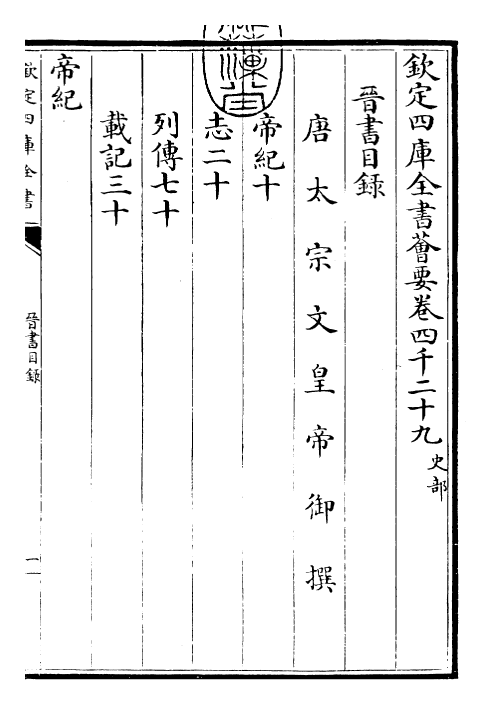 欽定四庫全書薈要卷四千二十九 史部
晉書目錄
唐太宗文皇帝御撰
帝紀十
志二十
列傳七十
載記三十
帝紀
欽定四庫全書
晉書目錄
一